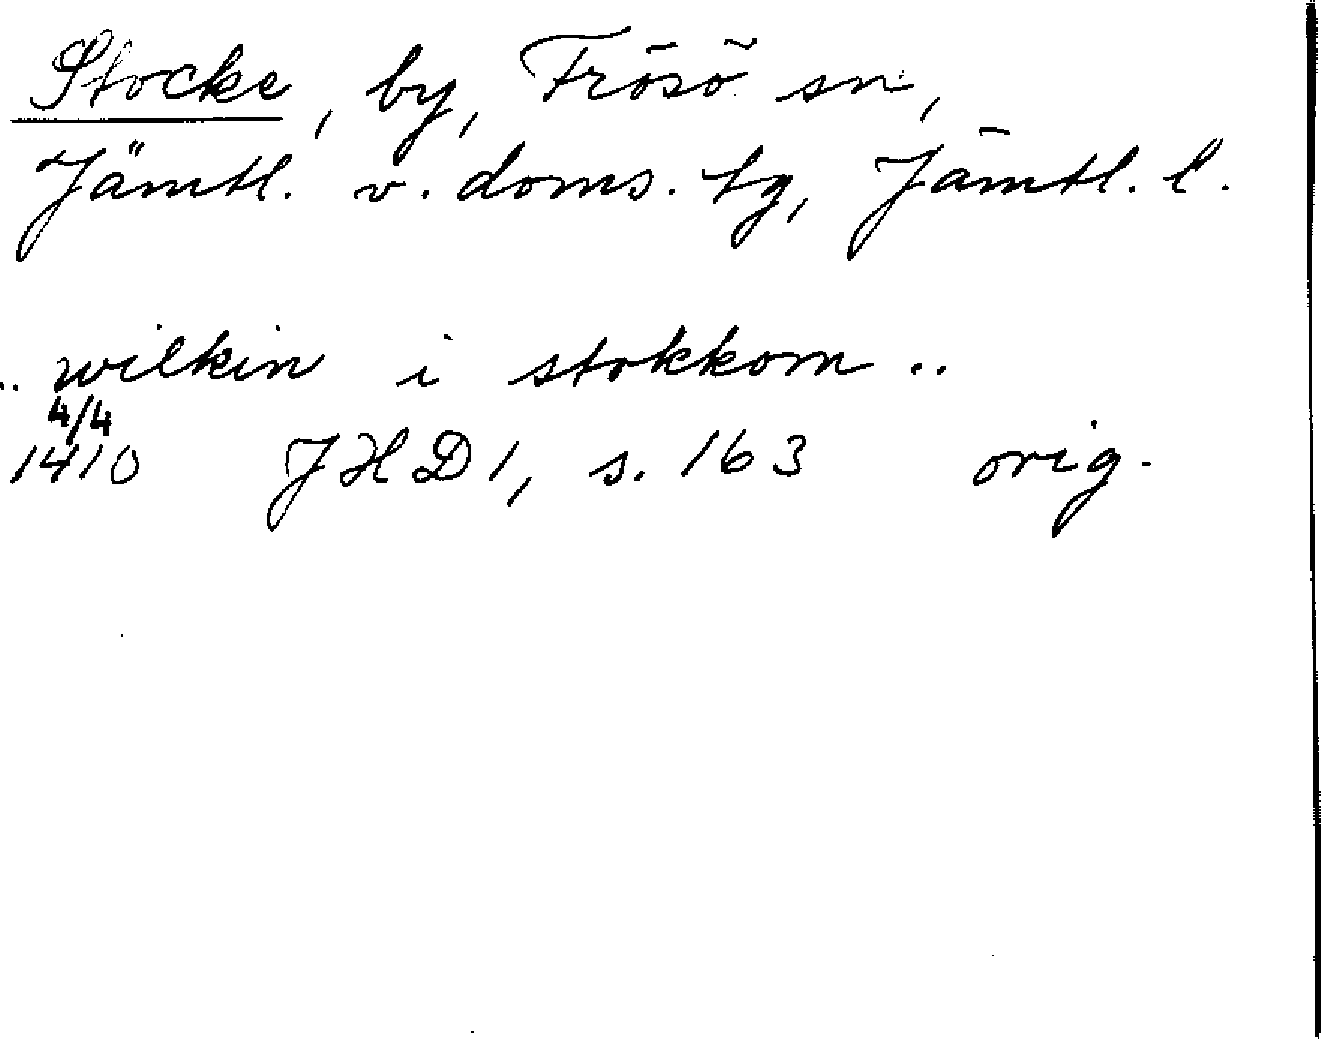 Stocke, by, Frösö sn,
Jämtl. v. doms. tg, Jämtl. l.
.. wilkin i stokkom ..
4/4
1410 JHD1, s. 163 orig.